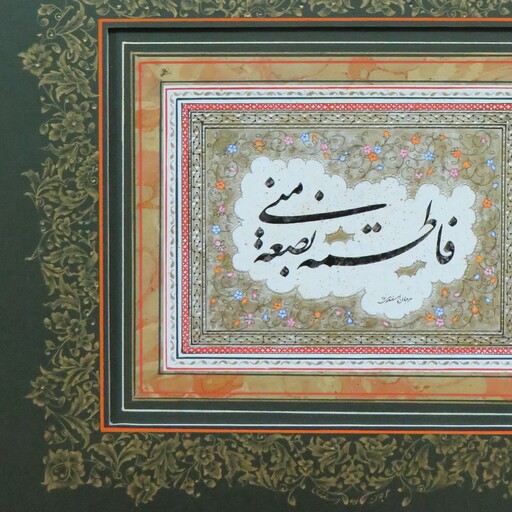 فاطمة بضعة منی